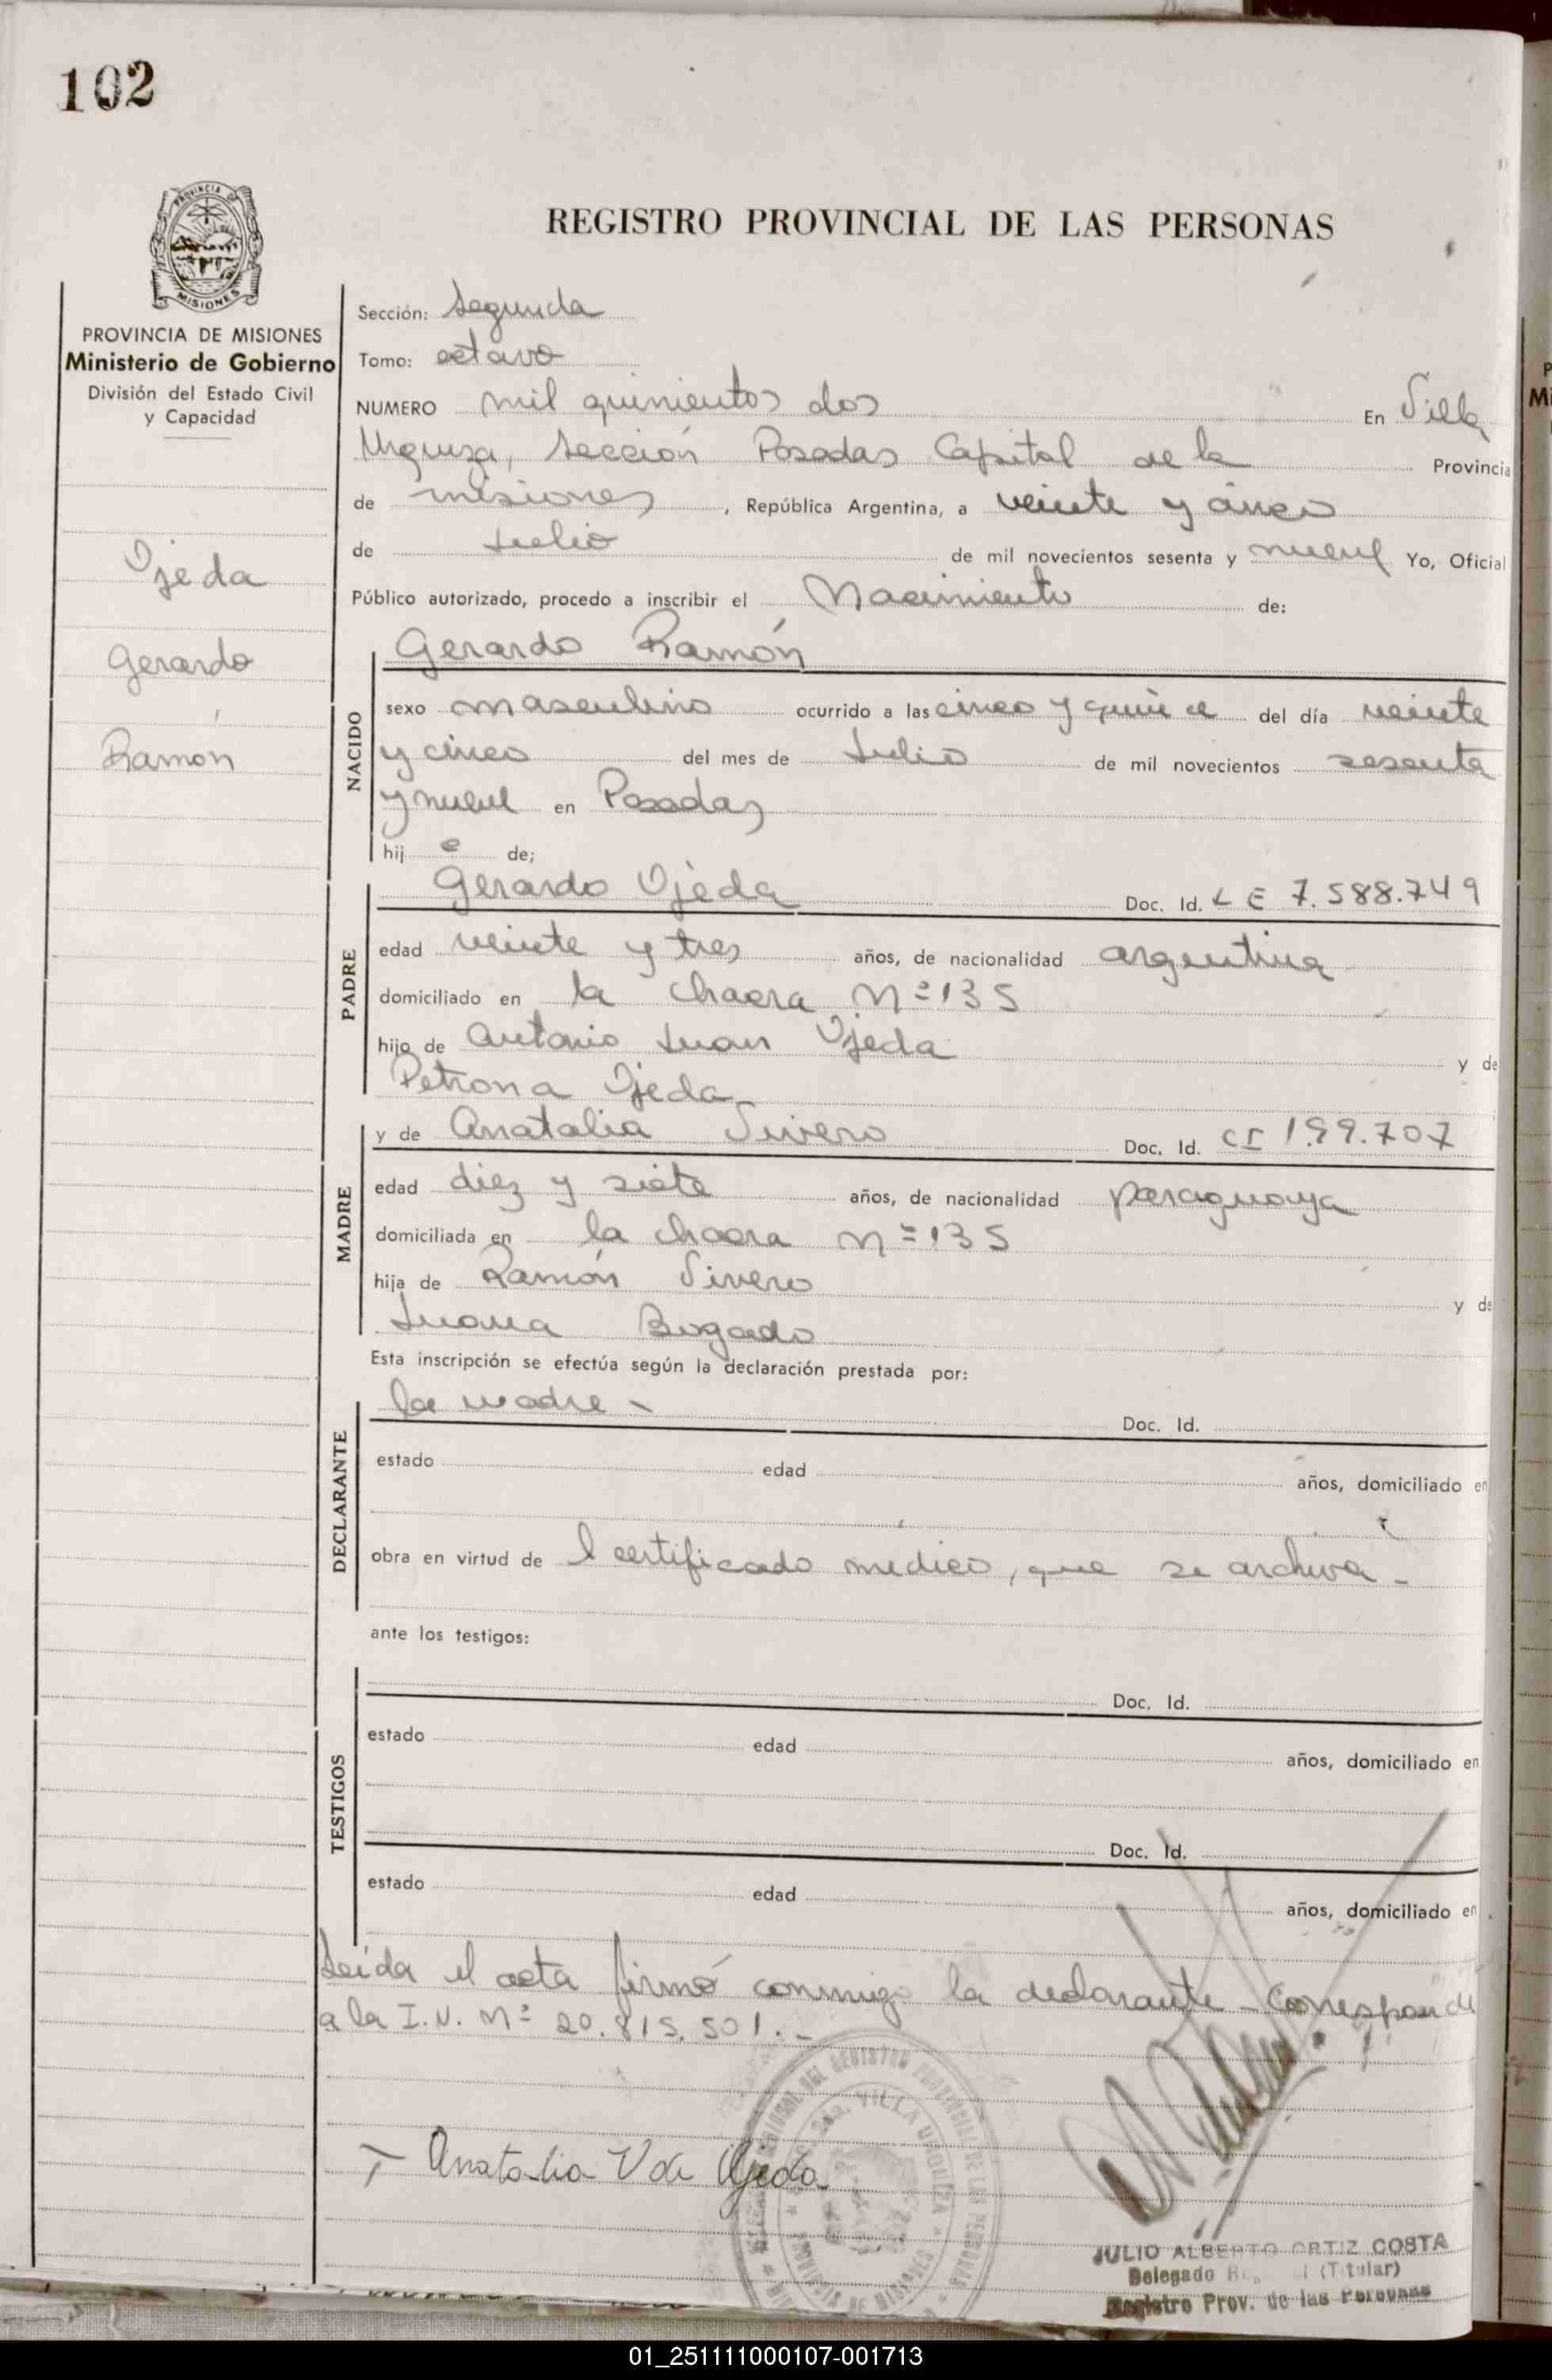 102
PROVINCIA
MISIONES
PROVINCIA DE MISIONES
Ministerio de Gobierno
División del Estado Civil
y Capacidad
Ojeda
Gerardo
Ramón
REGISTRO PROVINCIAL DE LAS PERSONAS
Sección: Segunda
Tomo: octavo
NUMERO mil quinientos dos En Villa
Urquiza, Sección Posadas Capital de la Provincia
de misiones, República Argentina, a veinte y cinco
de Julio de mil novecientos sesenta y nueve Yo, Oficial
Público autorizado, procedo a inscribir el Nacimiento de:
NACIDO
Gerardo Ramón
sexo masculino ocurrido a las cinco y quince del día veinte
y cinco del mes de Julio de mil novecientos sesenta
y nueve en Posadas
hij o de;
PADRE
Gerardo Ojeda Doc. Id. L E 7.588.749
edad veinte y tres años, de nacionalidad argentina
domiciliado en la chacra Nº 135
hijo de Antonio Juan Ojeda y de
Petrona Ojeda
MADRE
y de Anatalia Vivero Doc. Id. CI 199.707
edad diez y siete años, de nacionalidad paraguaya
domiciliada en la chacra Nº 135
hija de Ramón Vivero y de
Juana Bogado
Esta inscripción se efectúa según la declaración prestada por:
DECLARANTE
la madre - Doc. Id.
estado edad años, domiciliado en
obra en virtud de l certificado medico, que se archiva -
ante los testigos:
TESTIGOS
Doc. Id.
estado edad años, domiciliado en
Doc. Id.
estado edad años, domiciliado en
Leída el acta firmó conmigo la declarante - Corresponde
a la I.N. Nº 20.815.501.-
Anatalia V de Ojeda
DEL REGISTRO PROVINCIAL DE LAS PERSONAS
VILLA URQUIZA
PROVINCIA DE MISIONES
JULIO ALBERTO ORTIZ COSTA
Delegado (Titular)
Registro Prov. de las Personas
01_251111000107-001713